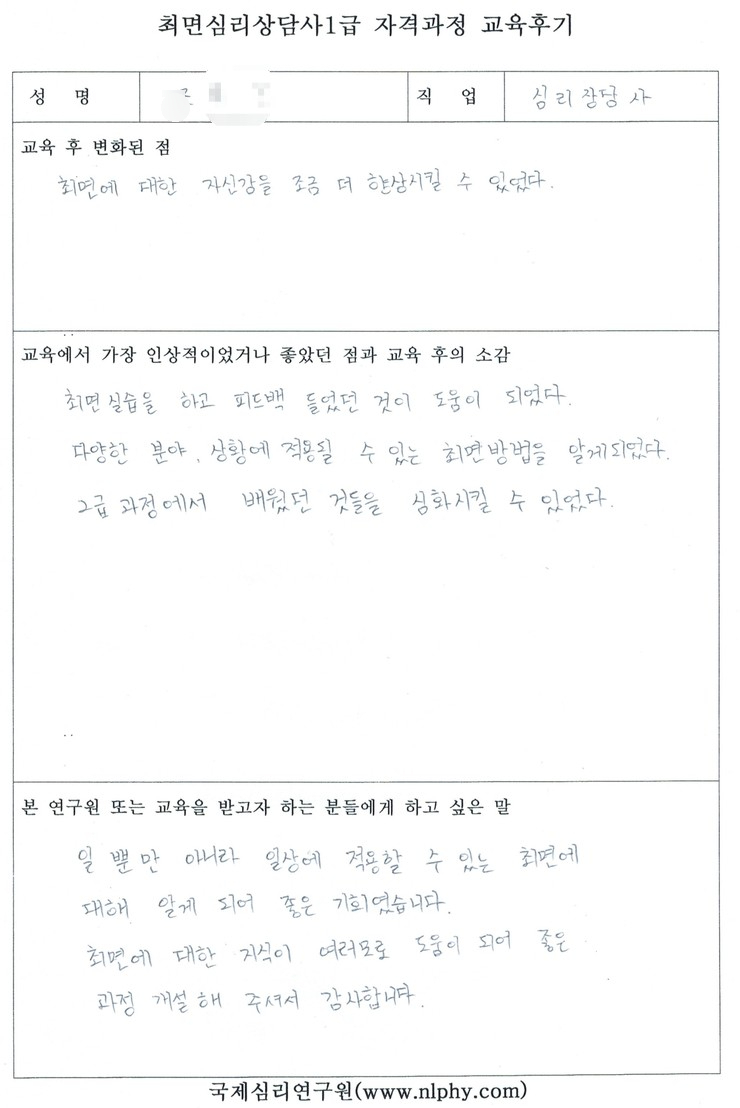 최면심리상담사1급 자격과정 교육후기
성 명
직 업 심리상담사
교육 후 변화된 점
최면에 대한 자신감을 조금 더 향상시킬 수 있었다.
교육에서 가장 인상적이었거나 좋았던 점과 교육 후의 소감
최면실습을 하고 피드백 들었던 것이 도움이 되었다.
다양한 분야, 상황에 적용될 수 있는 최면방법을 알게되었다.
2급 과정에서 배웠던 것들을 심화시킬 수 있었다.
본 연구원 또는 교육을 받고자 하는 분들에게 하고 싶은 말
일 뿐만 아니라 일상에 적용할 수 있는 최면에
대해 알게 되어 좋은 기회였습니다.
최면에 대한 지식이 여러모로 도움이 되어 좋은
과정 개설해 주셔서 감사합니다.
국제심리연구원(www.nlphy.com)